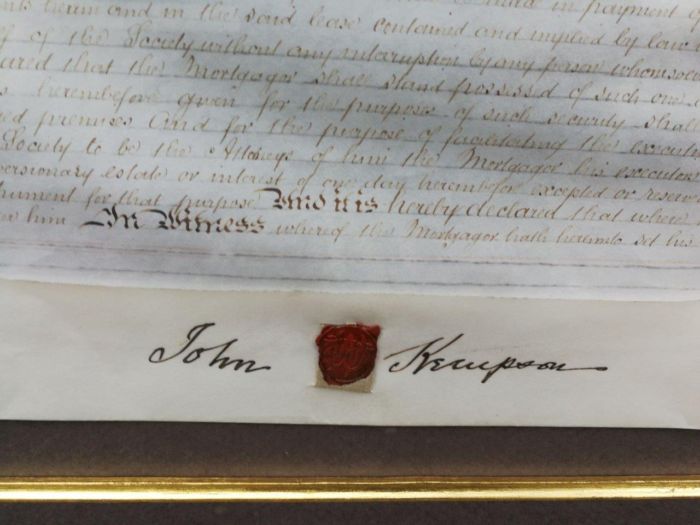 herein and in the said lease contained and implied by law
of the Society without any interruption by any person whomsoe
ared that the Mortgagor shall stand possessed of such one
hereinbefore given for the purposes of such security shall
ed premises And for the purpose of facilitating the executi
Society to be the Attorneys of him the Mortgagor his executors
versionary estate or interest of one day hereinbefore excepted or reserve
trument for that purpose And it is hereby declared that where
him In Witness whereof the Mortgagor hath hereunto set his
John Kempson